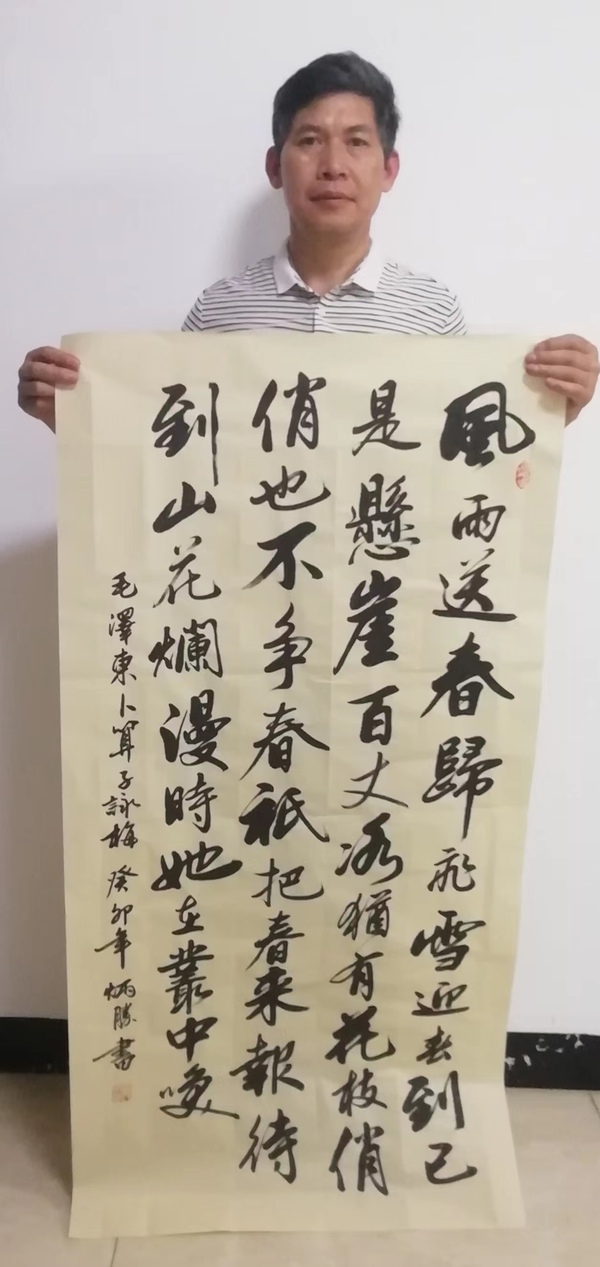 風雨送春歸飛雪迎春到已
是懸崖百丈冰猶有花枝俏
俏也不争春祇把春来報待
到山花爛漫時她在叢中咲
毛澤東卜算子詠梅 癸卯年炳勝書